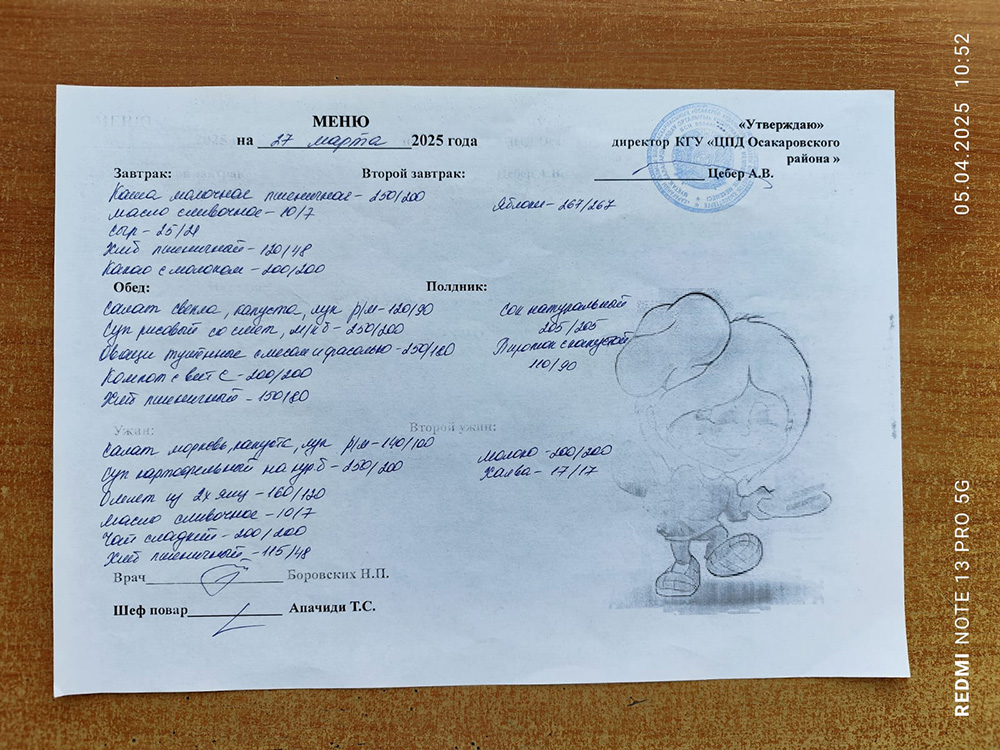 МЕНЮ
на 27 марта 2025 года
«Утверждаю»
директор КГУ «ЦПД Осакаровского
района »
Цебер А.В.
Завтрак:
Каша молочное пшеничное - 250/200
масло сливочное - 10/7
сыр - 25/24
Хлеб пшеничный - 120/48
Какао с молоком - 200/200
Второй завтрак:
Яблоки - 267/267
Обед:
Салат свекла, капуста, лук р/м - 120/90
Суп рисовый со смет, м/кб - 250/200
Овощи тушенные с мясом и фасолью - 250/180
Компот с вит С - 200/200
Хлеб пшеничный - 150/80
Полдник:
Сок натуральный
205/205
Пирожок с капустой
110/90
Ужин:
Салат морковь, капуста, лук р/м - 140/100
Суп картофельный на кур.б - 250/200
Омлет из 2х яиц - 160/120
Масло сливочное - 10/7
Чай сладкий - 200/200
Хлеб пшеничный - 115/48
Второй ужин:
Молоко - 200/200
Халва - 17/17
Врач Боровских Н.П.
Шеф повар Апачиди Т.С.
05.04.2025 10:52
REDMI NOTE 13 PRO 5G